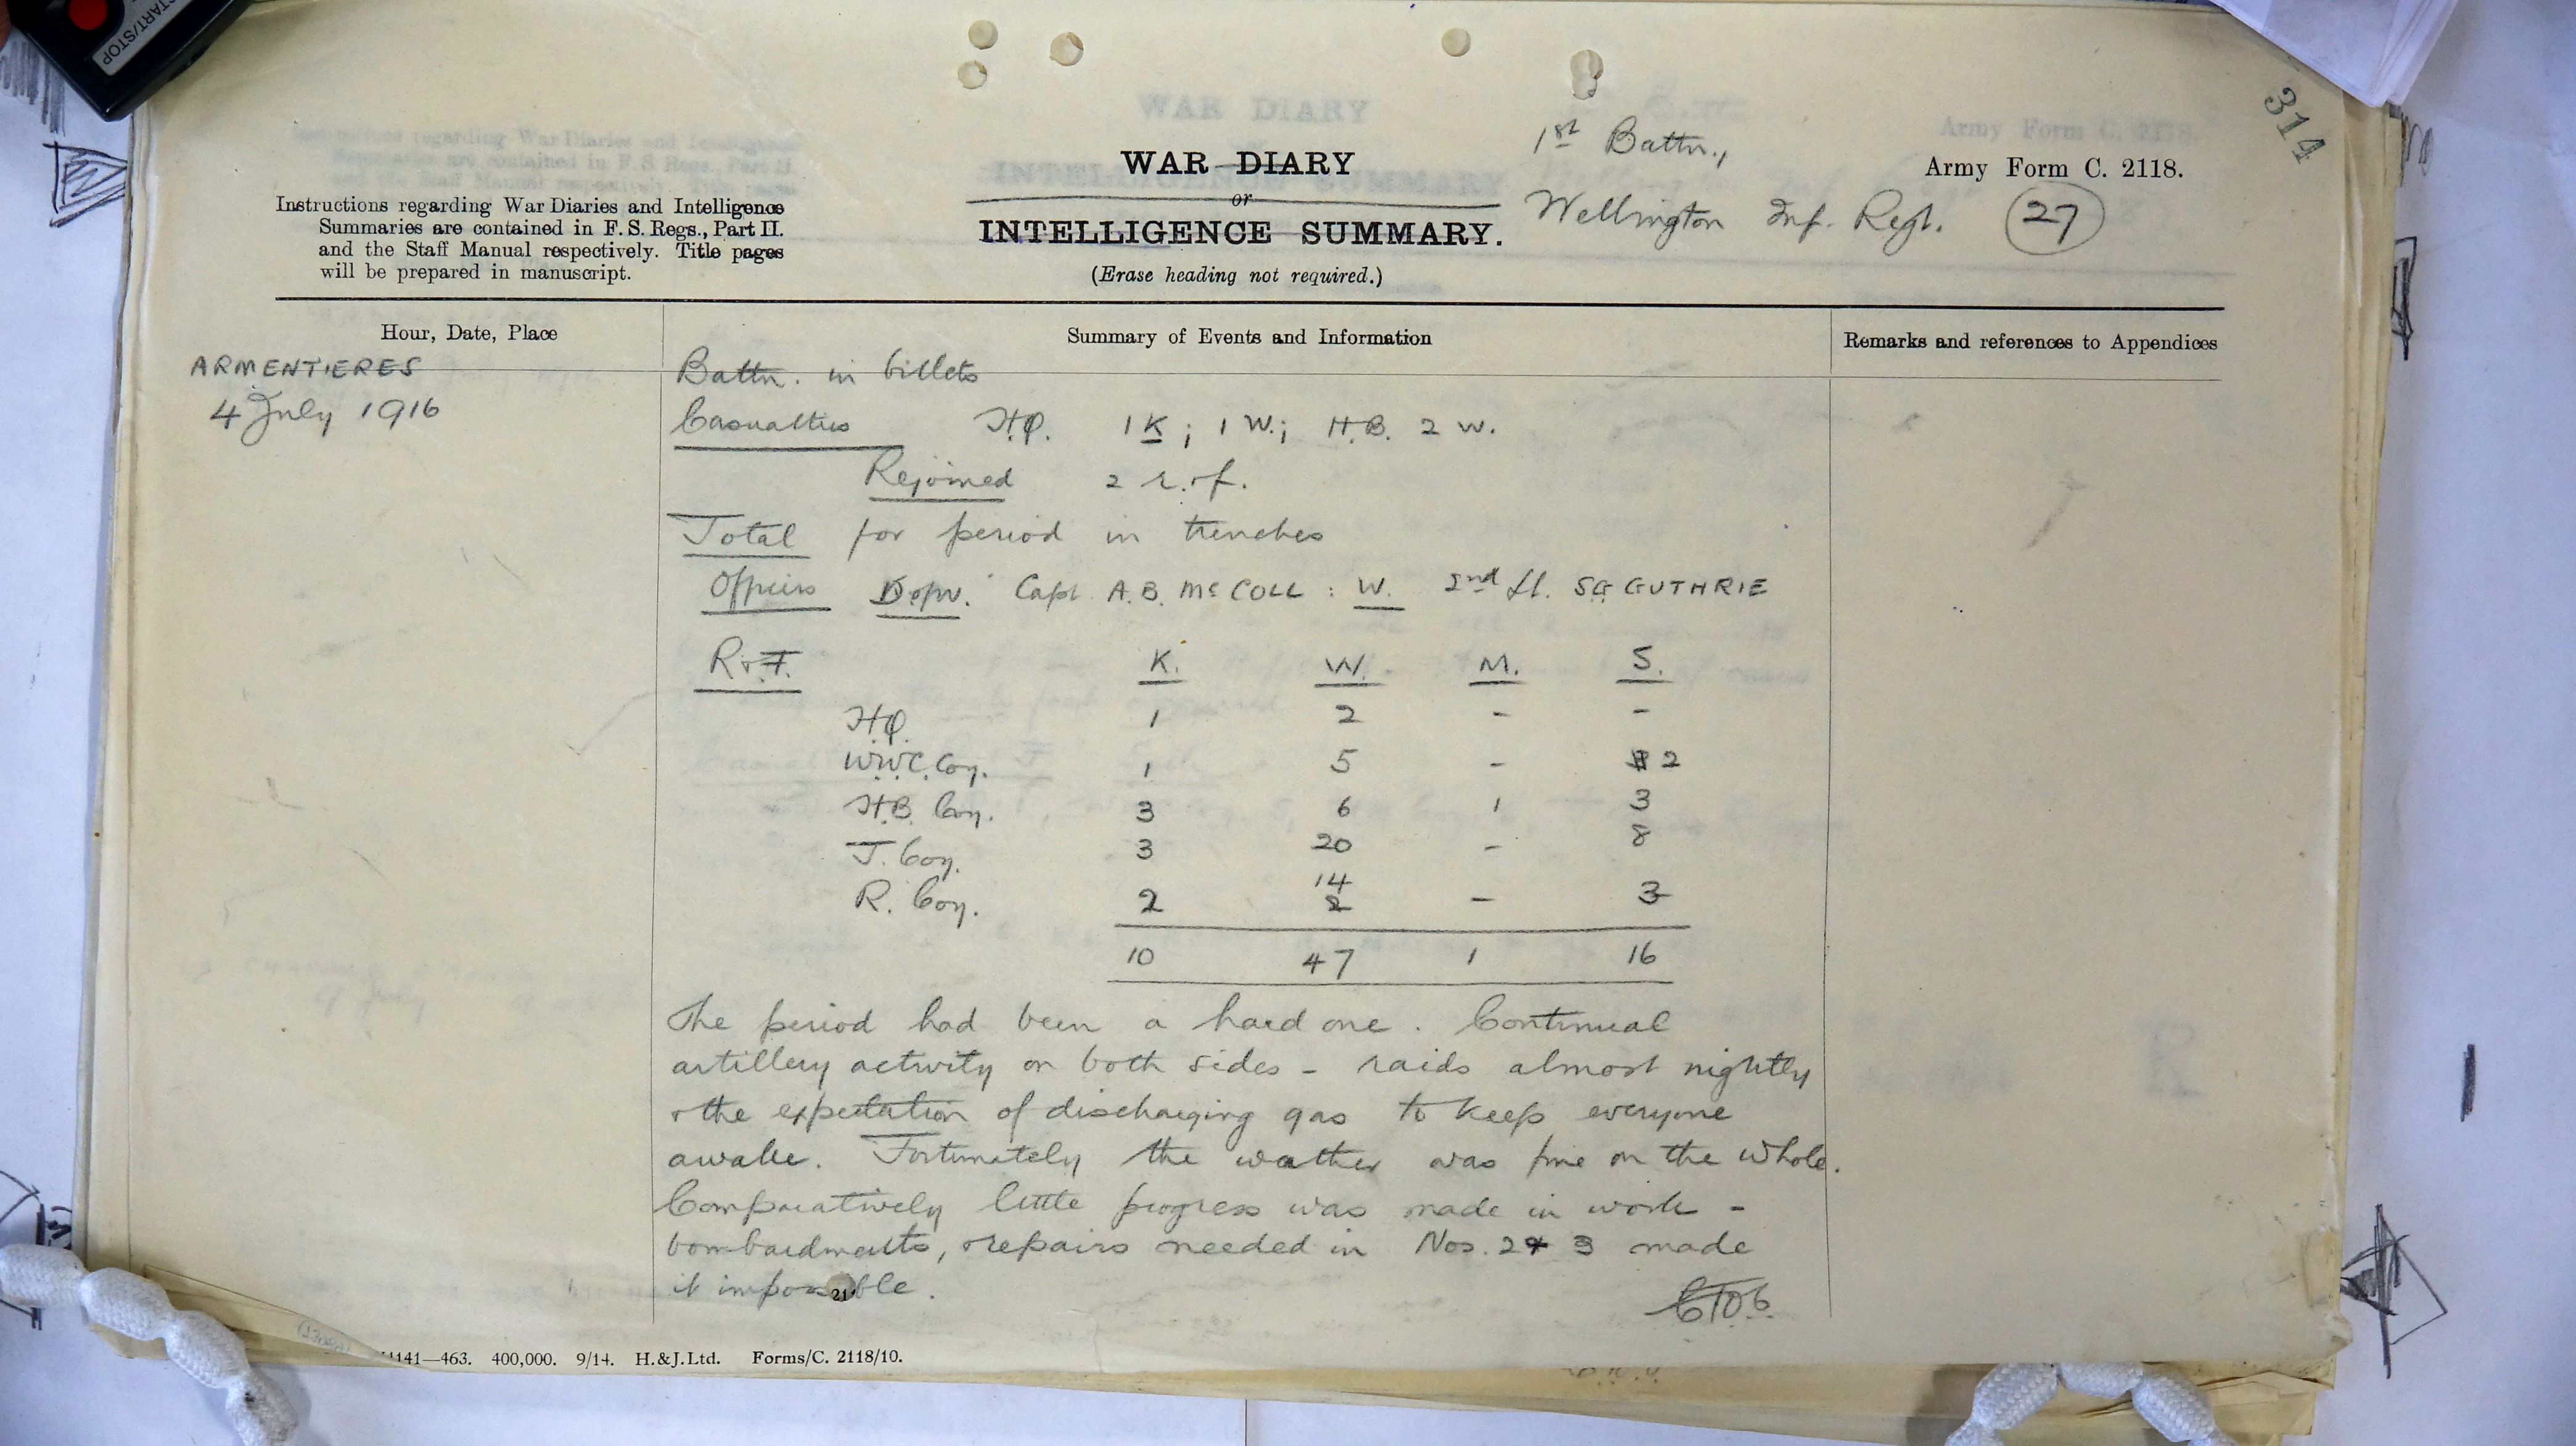 START/STOP
314
1st Battn.,
WAR DIARY
Army Form C. 2118.
or
Wellington Inf. Regt. 27
INTELLIGENCE SUMMARY.
(Erase heading not required.)
Instructions regarding War Diaries and Intelligence
Summaries are contained in F. S. Regs., Part II.
and the Staff Manual respectively. Title pages
will be prepared in manuscript.
Hour, Date, Place
Summary of Events and Information
Remarks and references to Appendices
ARMENTIERES
4 July 1916
Battn. in billets
Casualties H.Q. 1 K; 1 W.; H.B. 2 W.
Rejoined 2 r.+f.
Total for period in trenches
Officers Capt. A.B. McCOLL : W. 2nd Lt. SG GUTHRIE
R+F. K. W. M. S.
H.Q. 1 2 - -
W.W.C. Coy. 1 5 - 2
H.B. Coy. 3 6 1 3
T. Coy. 3 20 - 8
R. Coy. 2 14 - 3
10 47 1 16
The period had been a hard one. Continual
artillery activity on both sides - raids almost nightly
+ the expectation of discharging gas to keep everyone
awake. Fortunately the weather was fine on the whole.
Comparatively little progress was made in work -
bombardments, + repairs needed in Nos. 2 + 3 made
it impossible.
21
1141—463. 400,000. 9/14. H.&J.Ltd. Forms/C. 2118/10.